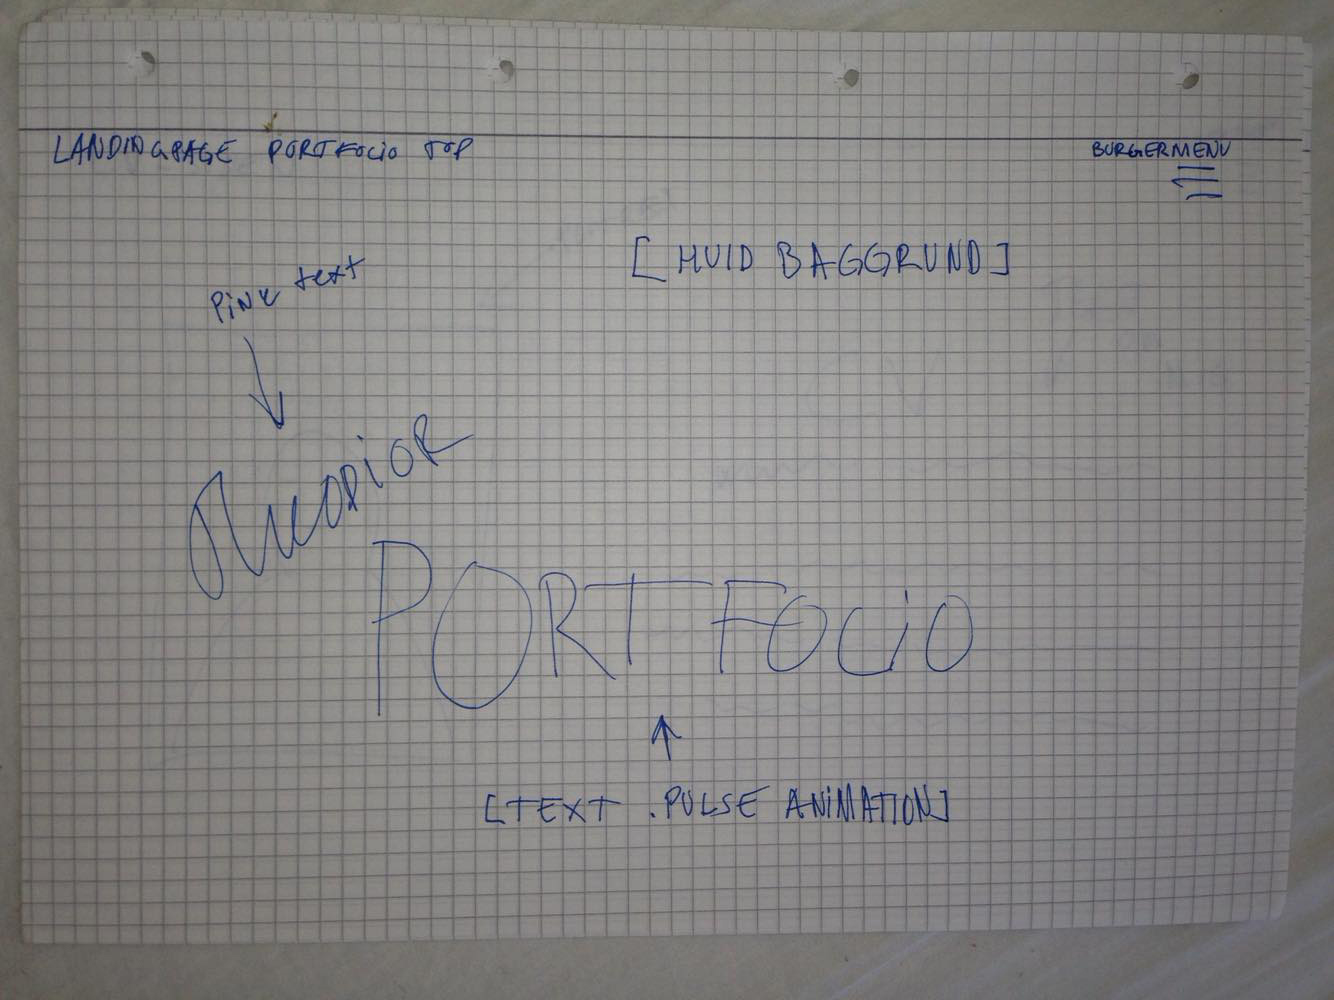 LANDINGPAGE PORTFOLIO TOP
BURGERMENU
[HVID BAGGRUND]
Pink text
PORTFOLIO
[TEXT .PULSE ANIMATION]